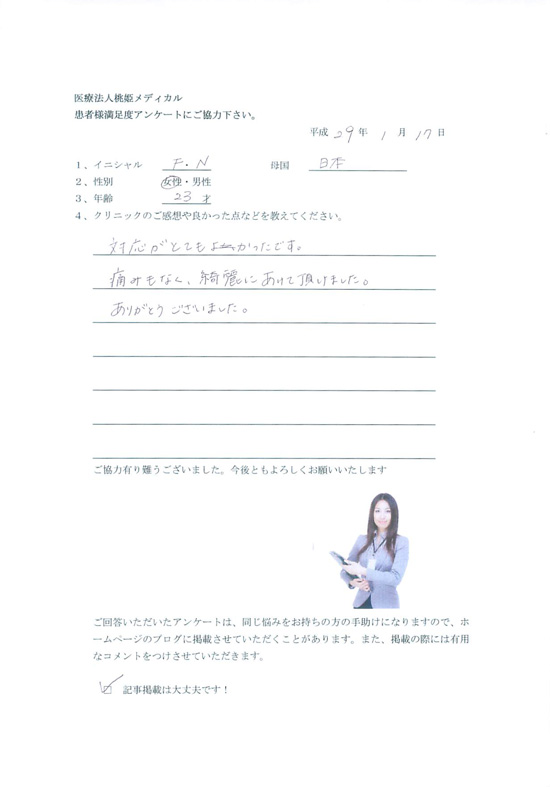 医療法人桃姫メディカル
患者様満足度アンケートにご協力下さい。
平成 29 年 1 月 17 日
1、イニシャル F.N 母国 日本
2、性別 女性・男性
3、年齢 23 才
4、クリニックのご感想や良かった点などを教えてください。
対応がとてもよかったです。
痛みもなく、綺麗にあけて頂けました。
ありがとうございました。
ご協力有り難うございました。今後ともよろしくお願いいたします
ご回答いただいたアンケートは、同じ悩みをお持ちの方の手助けになりますので、ホ
ームページのブログに掲載させていただくことがあります。また、掲載の際には有用
なコメントをつけさせていただきます。
☑ 記事掲載は大丈夫です！